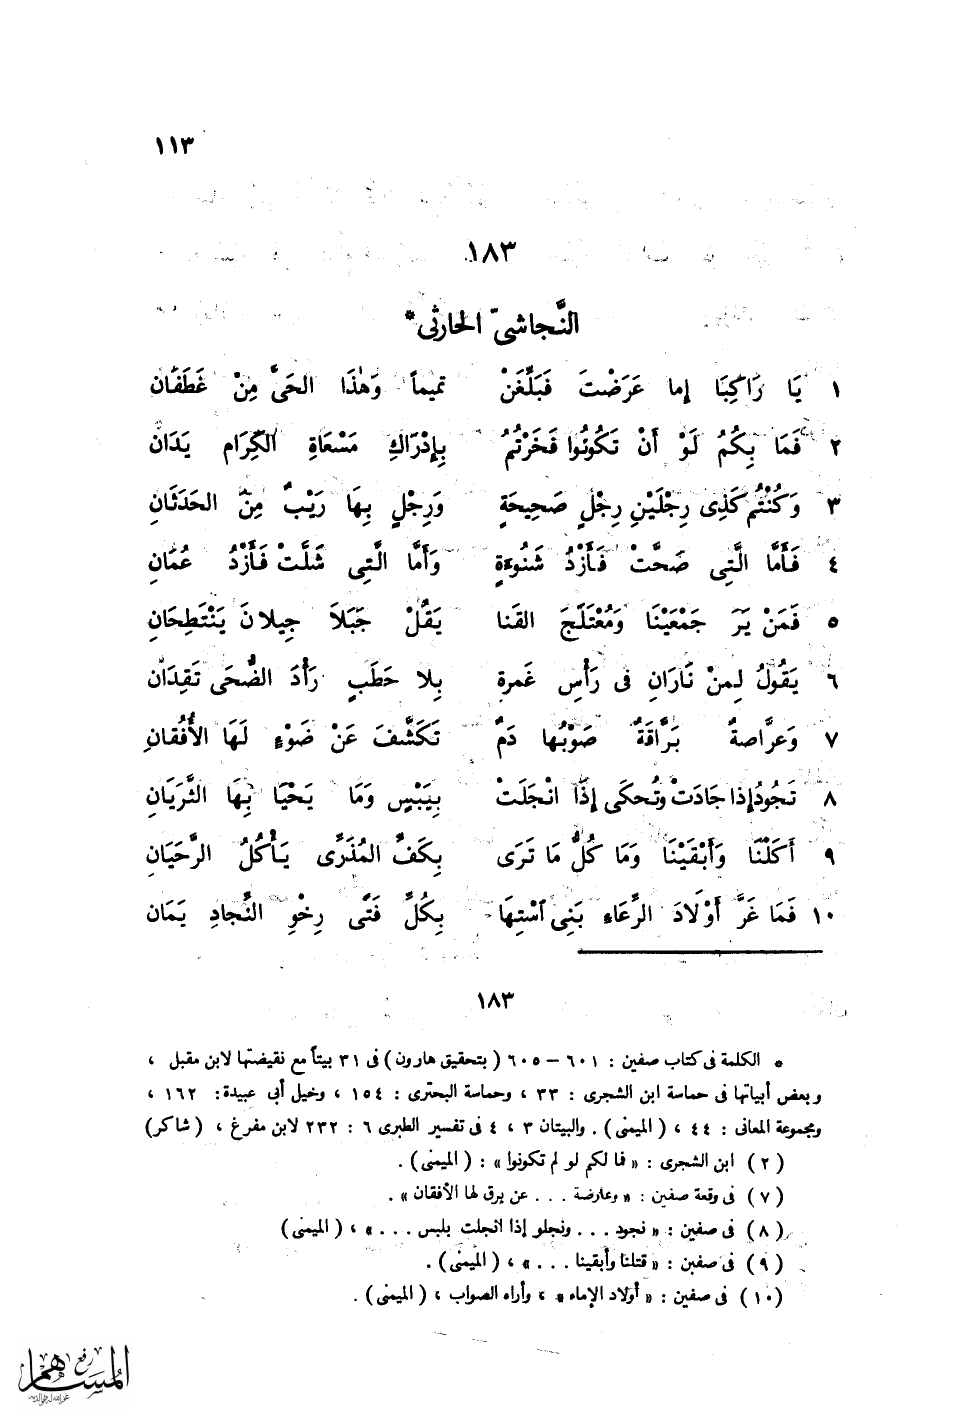 ١١٣
١٨٣
النَّجاشىّ الحارثى*
١ يَا رَاكِبًا إما عَرَضْتَ فَبَلِّغَنْ تميماً وَهٰذَا الحَىَّ مِنْ غَطَفَان
٢ فَمَا بِكُمُ لَوْ أَنْ تَكُونُوا فَخَرْتُمُ بِإِدْرَاكِ مَسْعَاةِ الكِرَام يَدَان
٣ وَكُنْتُم كَذِى رِجْلَيْنِ رِجْلٍ صَحِيحَةٍ وَرِجْلٍ بِهَا رَيْبٌ مِنَ الحَدَثَانِ
٤ فَأَمَّا الَّتِى صَحَّتْ فَأَزْدُ شَنُوءَةٍ وَأَمَّا الَّتِى شَلَّتْ فَأَزْدُ عُمَانِ
٥ فَمَنْ يَرَ جَمْعَيْنَا وَمُعْتَلَجَ القَنا يَقُلْ جَبَلاَ جِيلانَ يَنْتَطِحَانِ
٦ يَقُولُ لِمنْ نَارَانِ فى رَأْسِ غَمرةٍ بِلا حَطَبٍ رَأْدَ الضُّحَى تَقِدَان
٧ وَعرَّاصةٌ بَرَّاقَةٌ صَوْبُها دَمٌ تَكَشَّفَ عَنْ ضَوْءٍ لَهَا الأُفُقانِ
٨ تَجُودُ إذا جَادَتْ وتُحكَى إذَا انْجَلَتْ بِيَبْسٍ وَمَا يَحْيَا بِهَا الثَّرَيَانِ
٩ أَكَلْنَا وَأَبْقَيْنَا وَمَا كُلُّ مَا تَرَى بِكَفِّ المُذَرِّى يَأْكُلُ الرَّحَيَانِ
١٠ فَمَا غَرَّ أَوْلَادَ الرِّعَاءِ بَنِى ٱسْتِهَا بِكُلِّ فَتًى رِخْوِ النِّجادِ يَمَان
١٨٣
* الكلمة فى كتاب صفين : ٦٠١ – ٦٠٥ ( بتحقيق هارون ) فى ٣١ بيتاً مع نقيضتها لابن مقبل ،
وبعض أبياتها فى حماسة ابن الشجرى : ٣٣ ، وحماسة البحترى : ١٥٤ ، وخيل أبى عبيدة : ١٦٢ ،
ومجموعة المعانى : ٤٤ ، ( الميمنى ) . والبيتان ٣ ، ٤ فى تفسير الطبرى ٦ : ٢٣٢ لابن مفرغ ، ( شاكر )
( ٢ ) ابن الشجرى : « فما لكم لو لم تكونوا » : ( الميمنى ) .
( ٧ ) فى وقعة صفين : « وعارضة . . . عن برق لها الأفقان » .
( ٨ ) فى صفين : « نجود . . . ونجلو إذا انجلت بلبس . . . » ، ( الميمنى )
( ٩ ) فى صفين : « قتلنا وأبقينا . . . » ، ( الميمنى ) .
( ١٠ ) فى صفين : « أولاد الإماء » ، وأراه الصواب ، ( الميمنى ) .
رفع
المساهم
غفر الله له ولوالديه